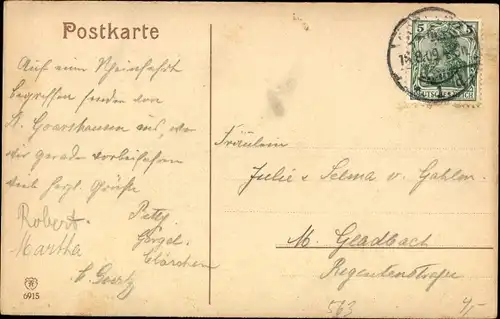 Postkarte
Auf einer Rheinfahrt
begriffen senden von
St. Goarshausen aus, wo
wir gerade vorbeifahren
viel herzl. Grüße
Robert
Martha
Petty
Görgel
Clärchen
Goertz
6915
5 5
DEUTSCHES REICH
Fräulein
Julie & Selma v. Gahlen.
M. Gladbach
Regentenstraße
563